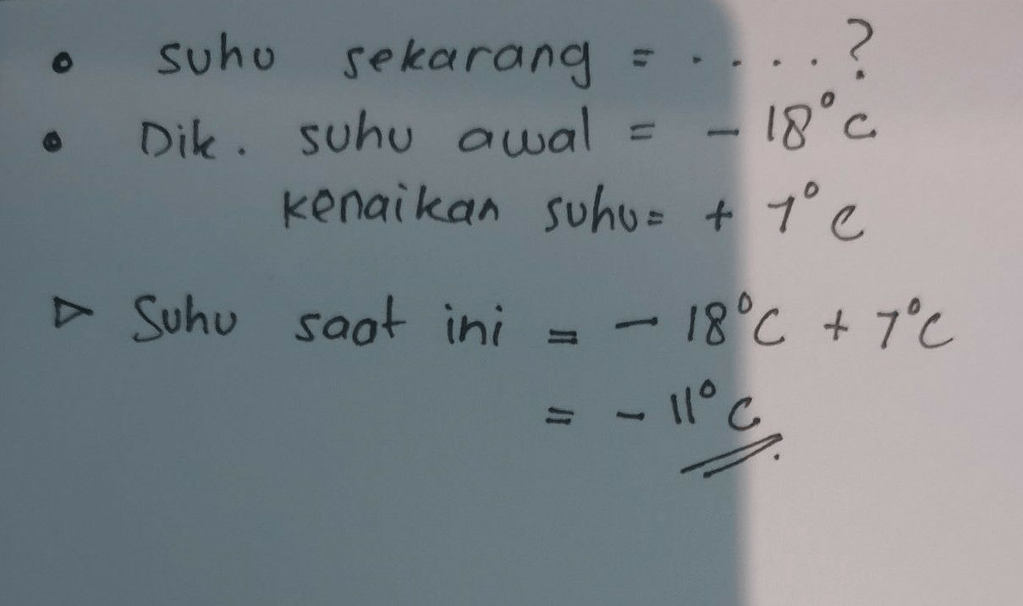 • suhu sekarang = . . . . . ?
• Dik. suhu awal = - 18°C
kenaikan suhu = + 7°C
▷ Suhu saat ini = - 18°C + 7°C
= - 11°C